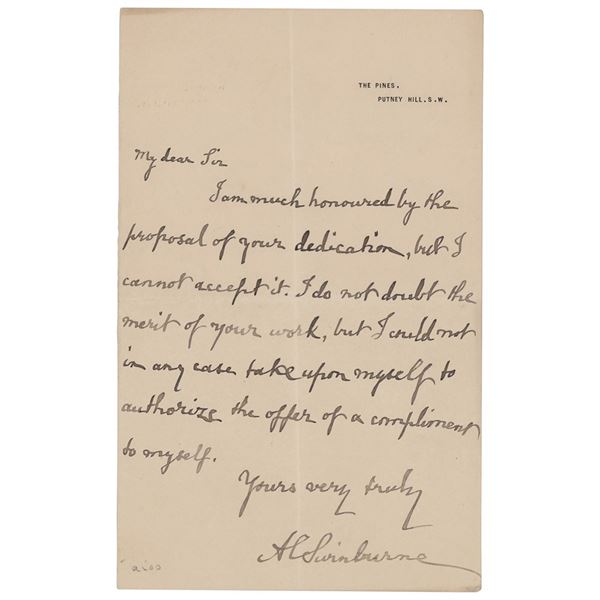 THE PINES.
PUTNEY HILL. S. W.
My dear Sir
I am much honoured by the
proposal of your dedication, but I
cannot accept it. I do not doubt the
merit of your work, but I could not
in any case take upon myself to
authorize the offer of a compliment
to myself.
Yours very truly
A C Swinburne